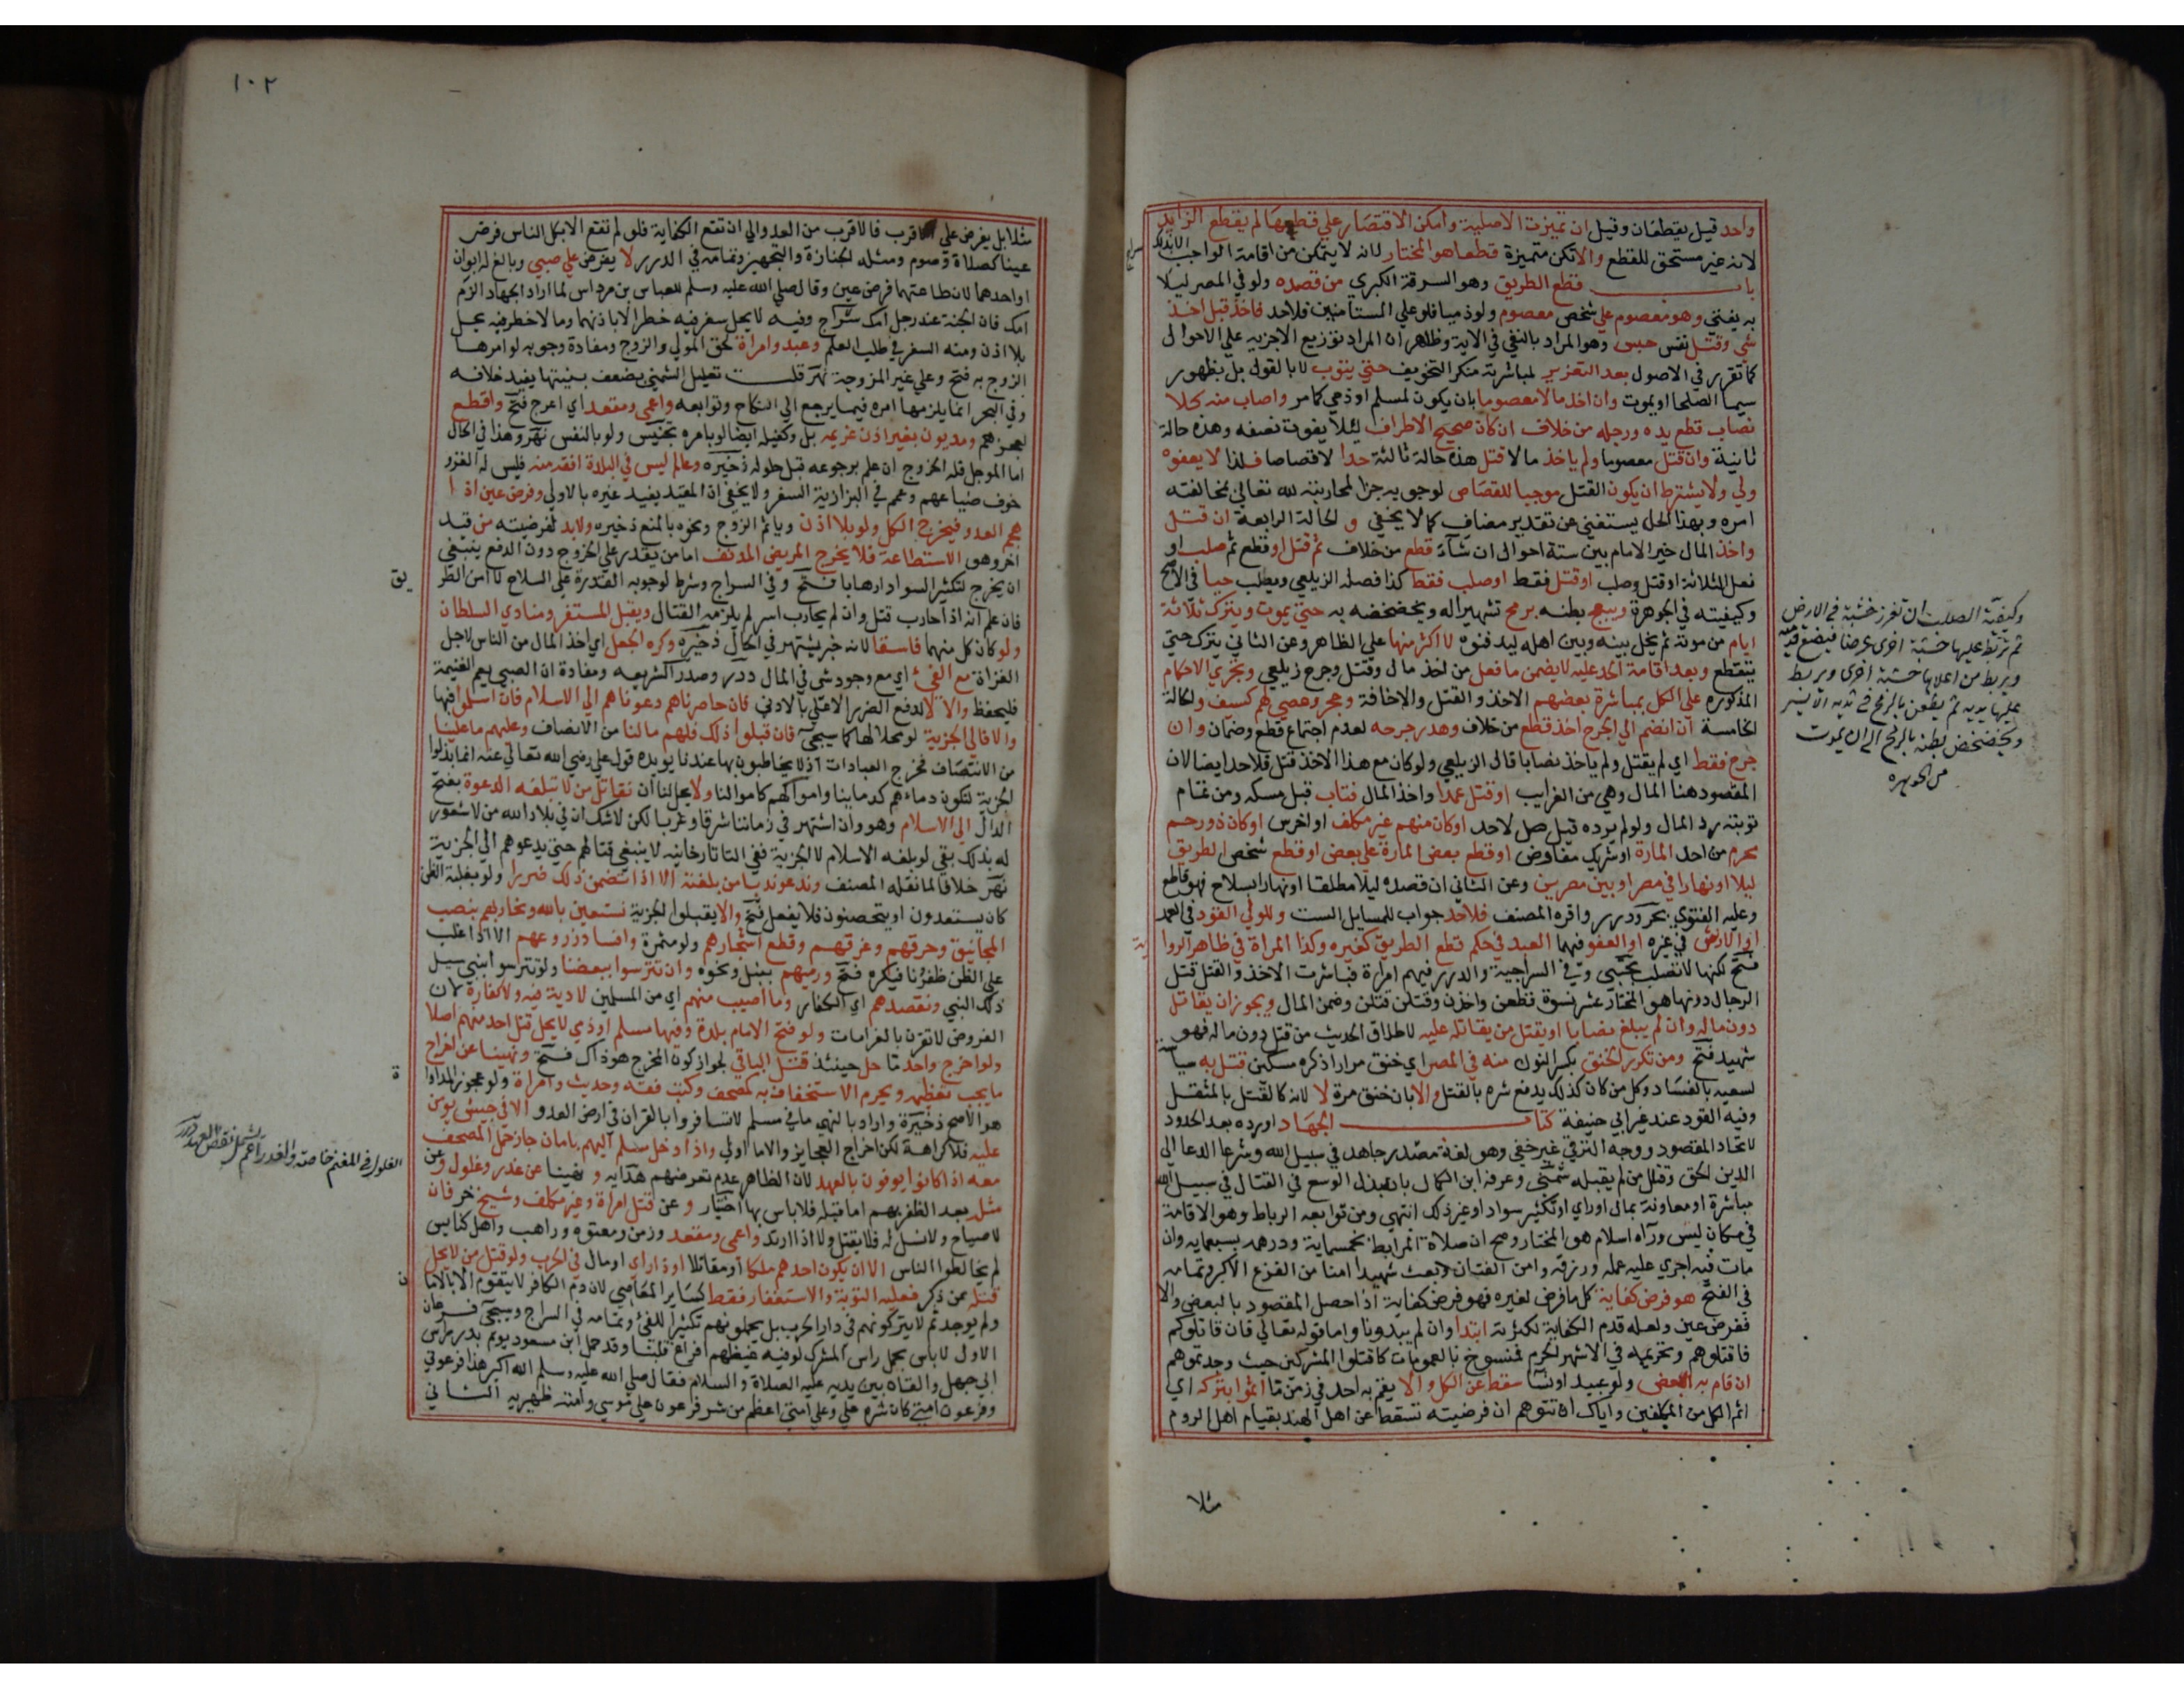 واحد قيل يقطعان وقيل ان تميزت الاصلية وامكن الاقتصار علي قطعها لم يقطع الزايد
لانه غير مستحق للقطع والا تكن متميزة قطعا هو المختار لانه لا يتمكن من اقامة الواجب الا بذلك
باب قطع الطريق وهو السرقة الكبري من قصده ولو في المصر ليلا
به يفتي وهو معصوم علي شخص معصوم ولو ذميا فلو علي المستأمنين فلا حد فاخذ قبل اخذ
شي وقتل نفس حبس وهو المراد بالنفي في الاية وظاهر ان المراد توزيع الاجزيه علي الاحوال
كما تقرر في الاصول بعد التعزير لمباشرته منكر التخويف حتي يتوب لا بالقول بل بظهور
سيما الصلحا او يموت وان اخذ مالا معصوما بان يكون لمسلم او ذمي كما مر واصاب منه كلا
نصاب قطع يده ورجله من خلاف ان كان صحيح الاطراف ليلا يفوت نفعه وهذه حالة
ثانية وان قتل معصوما ولم ياخذ مالا قتل هذه حالة ثالثة حدا لا قصاصا فلذا لا يعفوه
ولي ولا يشترط ان يكون القتل موجبا للقصاص لوجوبه جزا لمحاربته لله تعالي بمخالفته
امره وبهذا الحل يستغني عن تقدير مضاف كما لا يخفي و الحالة الرابعة ان قتل
واخذ المال خير الامام بين ستة احوال ان شآء قطع من خلاف ثم قتل او قطع ثم صلب او
فعل الثلاثة او قتل وصلب او قتل فقط او صلب فقط كذا فصله الزيلعي ويصلب حيا في الاصح
وكيفيته في الجوهرة ويبعج بطنه برمح تشهيرا له ويخضخضه به حتي يموت ويترك ثلاثة
ايام من موته ثم يخل بينه وبين اهله ليدفنوه لا اكثر منها علي الظاهر وعن الثاني يترك حتي
يتقطع وبعد اقامة الحد عليه لا يضمن ما فعل من اخذ مال وقتل وجرح زيلعي وتجري الاحكام
المذكورة علي الكل بمباشرة بعضهم الاخذ والقتل والاخافة وحجر وعصي لهم كسيف والحالة
الخامسة ان انضم الي الجرح اخذ قطع من خلاف وهدر جرحه لعدم اجتماع قطع وضمان وان
جرح فقط اي لم يقتل ولم ياخذ نصابا قال الزيلعي ولو كان مع هذا الاخذ قتل فلا حد ايضا لان
المقصود هنا المال وهي من الغرايب او قتل عمدا واخذ المال فتاب قبل مسكه ومن تمام
توبته رد المال ولو لم يرده قيل صل لا حد او كان منهم غير مكلف او اخرس او كان ذو رحم
محرم من احد المارة او شريك مفاوض او قطع بعض المارة علي بعض او قطع شخص الطريق
ليلا او نهارا في مصر او بين مصرين وعن الثاني ان قصده ليلا مطلقا او نهارا بسلاح فهو قاطع
وعليه الفتوي بحر ودرر واقره المصنف فلا حد جواب للمسايل الست وللولي القود في العمد
او الارش في غيره او العفو فيهما العبد في حكم قطع الطريق كغيره وكذا المراة في ظاهر الروا
فتح لكنها لا تصلب مجتبي وفي السراجية والدرر فيهم امراة فباشرت الاخذ والقتل قتل
الرجال دونها هو المختار عشر نسوة قطعن واخذن وقتلن قتلن وضمن المال ويجوز ان يقاتل
دون ماله وان لم يبلغ نصابا او يقتل من يقاتله عليه لاطلاق الحديث من قتل دون ماله فهو
شهيد فتح ومن تكرر الخنق بكسر النون منه في المصر اي خنق مرارا ذكره مسكين قتل به سيا
لسعيه بالفساد وكل من كان كذلك يدفع شره بالقتل والا بان خنق مرة لا لانه كالقتل بالمثقل
وفيه القود عند غير ابي حنيفة كتاب الجهاد اورده بعد الحدود
لاتحاد المقصود ووجه الترقي غير خفي وهو لغة مصدر جاهد في سبيل الله وشرعا الدعا الي
الدين الحق وقتال من لم يقبله شمني وعرفه ابن الكمال بانه بذل الوسع في القتال في سبيل الله
مباشرة او معاونة بمال او راي او تكثير سواد او غير ذلك انتهي ومن توابعه الرباط وهو الاقامة
في مكان ليس ورآه اسلام هو المختار وصح ان صلاة المرابط بخمسماية ودرهمه بسبعماية وان
مات فيه اجري عليه عمله ورزقه وامن الفتان وبعث شهيدا امنا من الفزع الاكبر وتمامه
في الفتح هو فرض كفاية كل ما فرض لغيره فهو فرض كفاية اذا حصل المقصود بالبعض والا
ففرض عين ولعله قدم الكفاية لكثرته ابتدا وان لم يبدونا واما قوله تعالي فان قاتلوكم
فاقتلوهم وتحريمه في الاشهر الحرم فمنسوخ بالعمومات كاقتلوا المشركين حيث وجدتموهم
ان قام به البعض ولو عبيد او نسا سقط عن الكل والا يقم به احد في زمن ما اثموا بتركه اي
اثم الكل من المكلفين واياك ان تتوهم ان فرضيته تسقط عن اهل الهند بقيام اهل الروم
مثلا
وكيفية الصلب ان تغرز خشبة في الارض
ثم تربط عليها خشبة اخرى عرضا فيضع قدميه
ويربط من اعلاها خشبة اخرى ويربط
عليها يديه ثم يطعن بالرمح في ثديه الايسر
ويخضخض بطنه بالرمح الى ان يموت
من الجوهره
١٠٢
مثلا بل يفرض علي الاقرب فالاقرب من العدو الي ان تقع الكفاية فلو لم تقع الا بكل الناس فرض
عينا كصلاة وصوم ومثله الجنازة والتجهيز وتمامه في الدرر لا يفرض علي صبي وبالغ له ابوان
او احدهما لان طاعتهما فرض عين وقال صلي الله عليه وسلم للعباس بن مرداس لما اراد الجهاد الزم
امك فان الجنة عند رجل امك سراج وفيه لا يحل سفر فيه خطر الا باذنهما وما لا خطر فيه يحل
بلا اذن ومنه السفر في طلب العلم وعبد وامراة لحق المولي والزوج ومفاده وجوبه لو امرها
الزوج به فتح وعلي غير المزوجة نهر قلت تعليل الشمني بضعف بنيتها يفيد خلافه
وفي البحر انما يلزمها امره فيما يرجع الي النكاح وتوابعه واعمي ومقعد اي اعرج فتح واقطع
لعجزهم ومديون بغير اذن غريمه بل وكفيله ايضا لو بامره تجنيس ولو بالنفس نهر وهذا في الحال
اما الموجل فله الخروج ان علم برجوعه قبل حلوله ذخيره وعالم ليس في البلدة افقه منه فليس له الغزو
خوف ضياعهم وعمم في البزازية السفر ولا يخفي ان المقيد يفيد غيره بالاولي وفرض عين اذا
هجم العدو فيخرج الكل ولو بلا اذن وياثم الزوج ونحوه بالمنع ذخيره ولابد لفرضيته من قيد
اخر وهو الاستطاعة فلا يخرج المريض المدنف اما من يقدر علي الخروج دون الدفع ينبغي
ان يخرج لتكثير السواد ارهابا فتح وفي السراج وشرط لوجوبه القدرة علي السلاح لا امن الطر
يق
فان علم انه اذا حارب قتل وان لم يحارب اسر لم يلزمه القتال ويقبل المستنفر ومنادي السلطان
ولو كان كل منهما فاسقا لانه خبر يشتهر في الحال ذخيره وكره الجعل اي اخذ المال من الناس لاجل
الغزاة مع الفئ اي مع وجود شي في المال درر وصدر الشريعه ومفاده ان الصبي يعم الغنيمة
فليحفظ والا لا لدفع الضرر الاعلي بالادني فان حاصرناهم دعوناهم الي الاسلام فان اسلموا فبها
والا فالي الجزية لو محلا لها كما سيجي فان قبلوا ذلك فلهم ما لنا من الانصاف وعليهم ما علينا
من الانتصاف فخرج العبادات اذ لا يخاطبون بها عندنا يويده قول علي رضي الله تعالي عنه انما بذلوا
الجزية لتكون دماءهم كدماينا واموالهم كاموالنا ولا يحل لنا ان نقاتل من لا تبلغه الدعوة بفتح
الدال الي الاسلام وهو وان اشتهر في زماننا شرقا وغربا لكن لا شك ان في بلاد الله من لا شعور
له بذلك بقي لو بلغه الاسلام لا الجزية ففي التاتارخانيه لا ينبغي قتالهم حتي يدعوهم الي الجزية
نهر خلافا لما نقله المصنف وندعو ندبا من بلغته الا اذا تضمن ذلك ضررا ولو بغلبة الظن
كان يستعدون او يتحصنون فلا يفعل فتح والا يقبلوا الجزية نستعين بالله ونحاربهم بنصب
المجانيق وحرقهم وغرقهم وقطع اشجارهم ولو مثمرة وافساد زروعهم الا اذا غلب
علي الظن ظفرنا فيكره فتح ورميهم بنبل ونحوه وان تترسوا ببعضنا ولو تترسوا بنبي سيل
ذلك النبي ونقصدهم اي الكفار وما اصيب منهم اي من المسلمين لا دية فيه ولا كفارة لان
الفروض لا تقرن بالغرامات ولو فتح الامام بلدة وفيها مسلم او ذمي لا يحل قتل احد منهم اصلا
ولو اخرج واحد ما حل حينئذ قتل الباقي لجواز كون المخرج هو ذاك فتح ونهينا عن اخراج
ما يجب تعظيمه ويحرم الاستخفاف به كمصحف وكتب فقه وحديث وامراة ولو عجوز المداوا
ة
هو الاصح ذخيرة واراد بالنهي ما في مسلم لا تسافروا بالقران في ارض العدو الا في جيش يومن
عليه فلا كراهة لكن اخراج العجايز والاما اولي واذا دخل مسلم اليهم بامان جاز حمل المصحف
معه اذا كانوا يوفون بالعهد لان الظاهر عدم تعرضهم هدايه و نهينا عن غدر وغلول وعن
مثلة بعد الظفر بهم اما قبله فلا باس بها اختيار و عن قتل امراة وغير مكلف وشيخ خر فان
لا صياح ولا نسل له فلا يقتل ولا اذا ارتد واعمي ومقعد وزمن ومعتوه وراهب واهل كنايس
لم يخالطوا الناس الا ان يكون احدهم ملكا او مقاتلا او ذا راي او مال في الحرب ولو قتل من لا يحل
قتله ممن ذكر فعليه التوبة والاستغفار فقط كساير المعاصي لان دم الكافر لا يتقوم الا بالاما
ن
ولم يوجد ثم لا يتركونهم في دار الحرب بل يحملونهم تكثيرا للفئ وتمامه في السراج وسيجي فرعان
الاول لا باس بحمل راس المشرك لو فيه غيظهم افراغ قلبنا وقد حمل ابن مسعود يوم بدر راس
ابي جهل والقاه بين يديه عليه الصلاة والسلام فقال صلي الله عليه وسلم الله اكبر هذا فرعوني
وفرعون امتي كان شره علي وعلي امتي اعظم من شر فرعون علي موسي وامته ظهيريه الثاني
الغلول في المغنم خاصة والغدر اعم يشمل نقض العهد درر